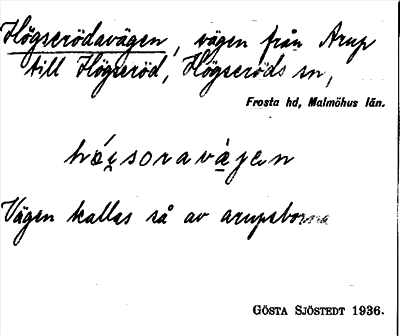 Högserödavägen, vägen från Arup
till Högseröd, Högseröds sn,
Frosta hd, Malmöhus län.
hǿsoravàgen
Vägen kallas så av arupsborna
GÖSTA SJÖSTEDT 1936.